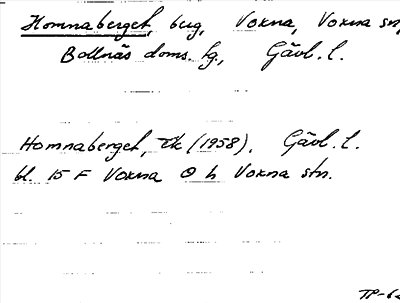 Homnaberget, berg, Voxna, Voxna sn,
Bollnäs doms. fg., Gävl. l.
Homnaberget, Ek (1958), Gävl. l.
bl. 15 F Voxna O h Voxna stn.
TP-6